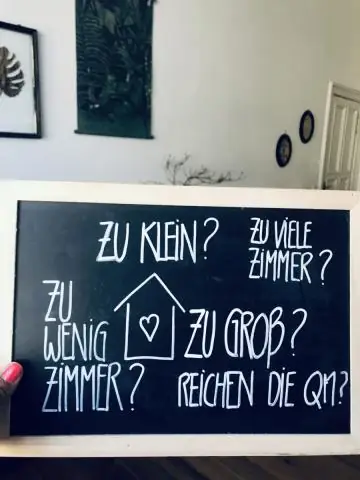 ZU KLEIN?
ZU VIELE
ZIMMER?
ZU
WENIG
ZIMMER?
ZU GROß?
REICHEN DIE QM?